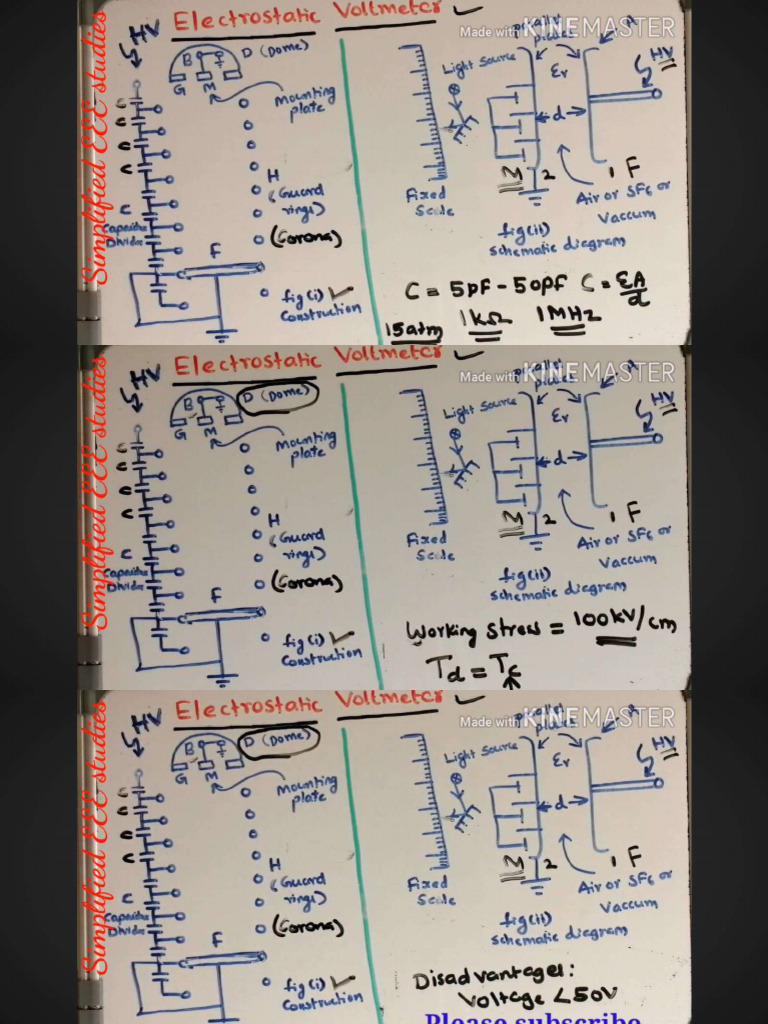 Simplified EEE studies
HV
Electrostatic Voltmeter
Made with KINEMASTER
B
D (Dome)
G
M
Mounting
plate
H
(Guard
rings)
(Corona)
C
C
C
C
C
Capacitive
Divider
F
fig(i)
Construction
Light Source
parallel
plates
Er
HV
d
M
2
1 F
Fixed
Scale
Air or SF6 or
Vaccum
fig(ii)
schematic diagram
C = 5pF - 50pf C = EA/d
15atm 1KΩ 1MHz
Simplified EEE studies
HV
Electrostatic Voltmeter
Made with KINEMASTER
B
D (Dome)
G
M
Mounting
plate
H
(Guard
rings)
(Corona)
C
C
C
C
C
Capacitive
Divider
F
fig(i)
Construction
Light Source
plates
Er
HV
d
M
2
1 F
Fixed
Scale
Air or SF6 or
Vaccum
fig(ii)
schematic diagram
Working Stress = 100kV/cm
Td = Tc
Simplified EEE studies
HV
Electrostatic Voltmeter
Made with KINEMASTER
B
D (Dome)
G
M
Mounting
plate
H
(Guard
rings)
(Corona)
C
C
C
C
C
Capacitive
Divider
F
fig(i)
Construction
Light Source
plates
Er
HV
d
M
2
1 F
Fixed
Scale
Air or SF6 or
Vaccum
fig(ii)
schematic diagram
Disadvantages:
Voltage <50V
Please subscribe